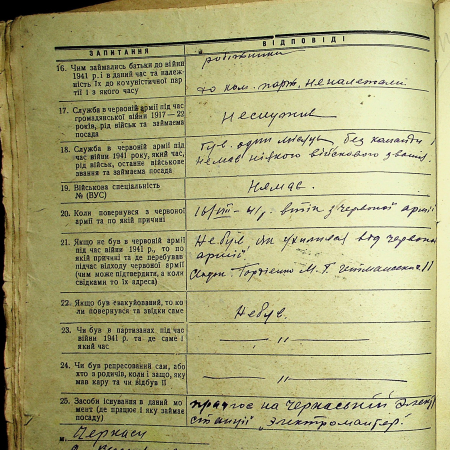 ЗАПИТАННЯ
ВІДПОВІДІ
робітники
16. Чим займались батьки до війни
1941 р. і в даний час та належ-
ність їх до комуністичної пар-
тії і з якого часу
до ком. парт. неналежали
17. Служба в червоній армії під час
громадянської війни 1917—22
років, рід військ та займаєма
посада
Неслужив
18. Служба в червоній армії під
час війни 1941 року, який час,
рід військ, останнє військове
звання та займаєма посада
Був один місяць без команди
немає ніякого військового звания
19. Військова спеціяльність
№ (ВУС)
Немає.
20. Коли повернувся з червоної
армії та по якій причині
16/VIII – 41 р. втік з червоної армії
21. Якщо не був в червоній армії
під час війни 1941 р., то по
якій причині та де перебував
підчас відходу червоної армії
(чим може підтвердити, а коли
свідками то їх адреса)
Небув, як ухилився від червоної
армії.
Гордієнко М. Г.
22. Якщо був евакуйований, то ко-
ли повернувся та звідки саме
Небув.
23. Чи був в партизанах під час
війни 1941 р. та де саме і
який час
— „ —
24. Чи був репресований сам, або
хто з родичів, коли і защо, яку
мав кару та чи відбув її
— „ —
25. Засоби існування в даний мо-
мент (де працює і яку займає
посаду)
працює на Черкаській Электро
станції „Электромонтер".
м. Черкаси